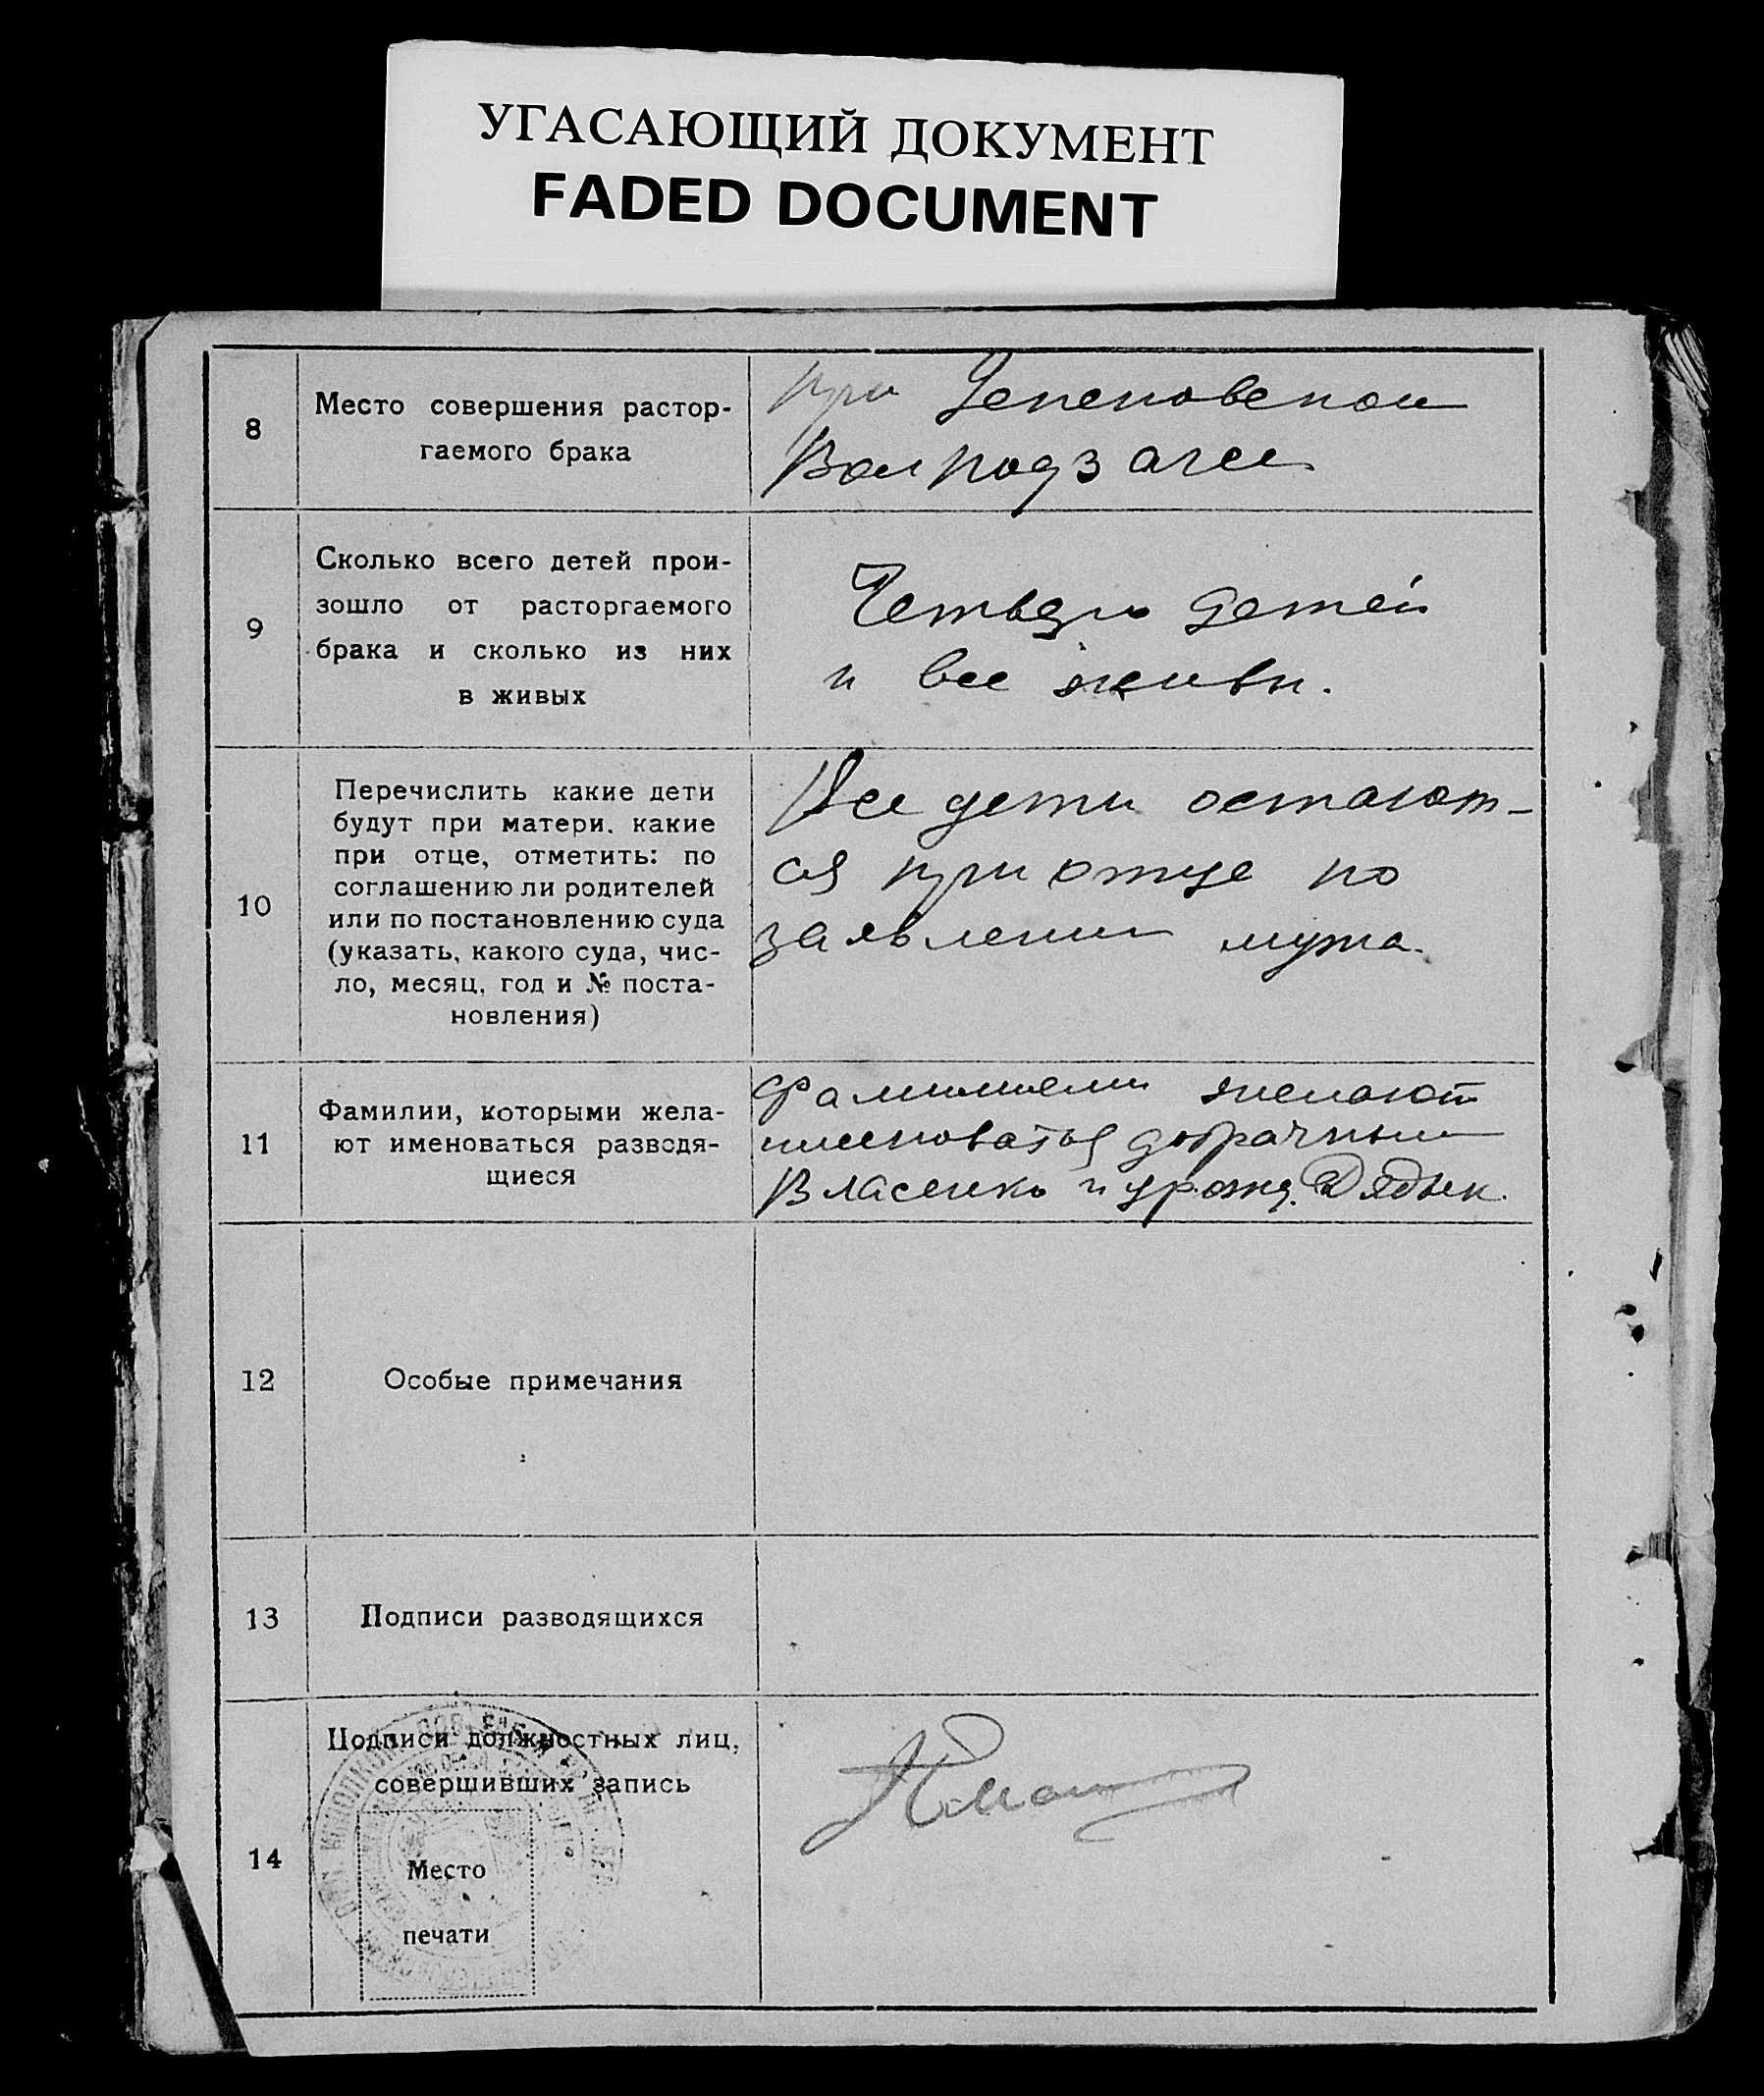 УГАСАЮЩИЙ ДОКУМЕНТ
FADED DOCUMENT
8
Место совершения растор-
гаемого брака
при
9
Сколько всего детей прои-
зошло от расторгаемого
брака и сколько из них
в живых
Четверо детей
и все живы.
10
Перечислить какие дети
будут при матери, какие
при отце, отметить: по
соглашению ли родителей
или по постановлению суда
(указать, какого суда, чис-
ло, месяц, год и № поста-
новления)
Все дети остают-
ся при отце по
заявлении мужа.
11
Фамилии, которыми жела-
ют именоваться разводя-
щиеся
Фамилиями желают
именоваться добрачными
Власенко и урожд.
12
Особые примечания
13
Подписи разводящихся
14
Подписи должностных лиц,
совершивших запись
Место
печати